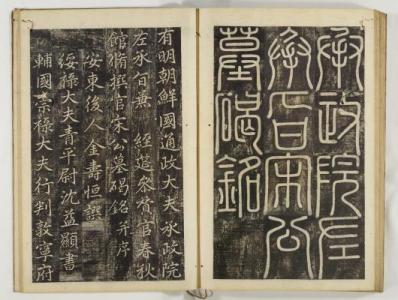 承政院左
承旨宋公
墓碣銘
有明朝鮮國通政大夫承政院
左承旨兼 經筵參贊官春秋
館脩撰官宋公墓碣銘并序
安東後人金壽恒譔
綏祿大夫青平尉沈益顯書
輔國崇祿大夫行判敦寧府